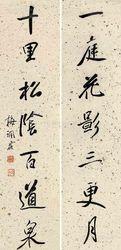 一庭花影三更月
十里松陰百道泉